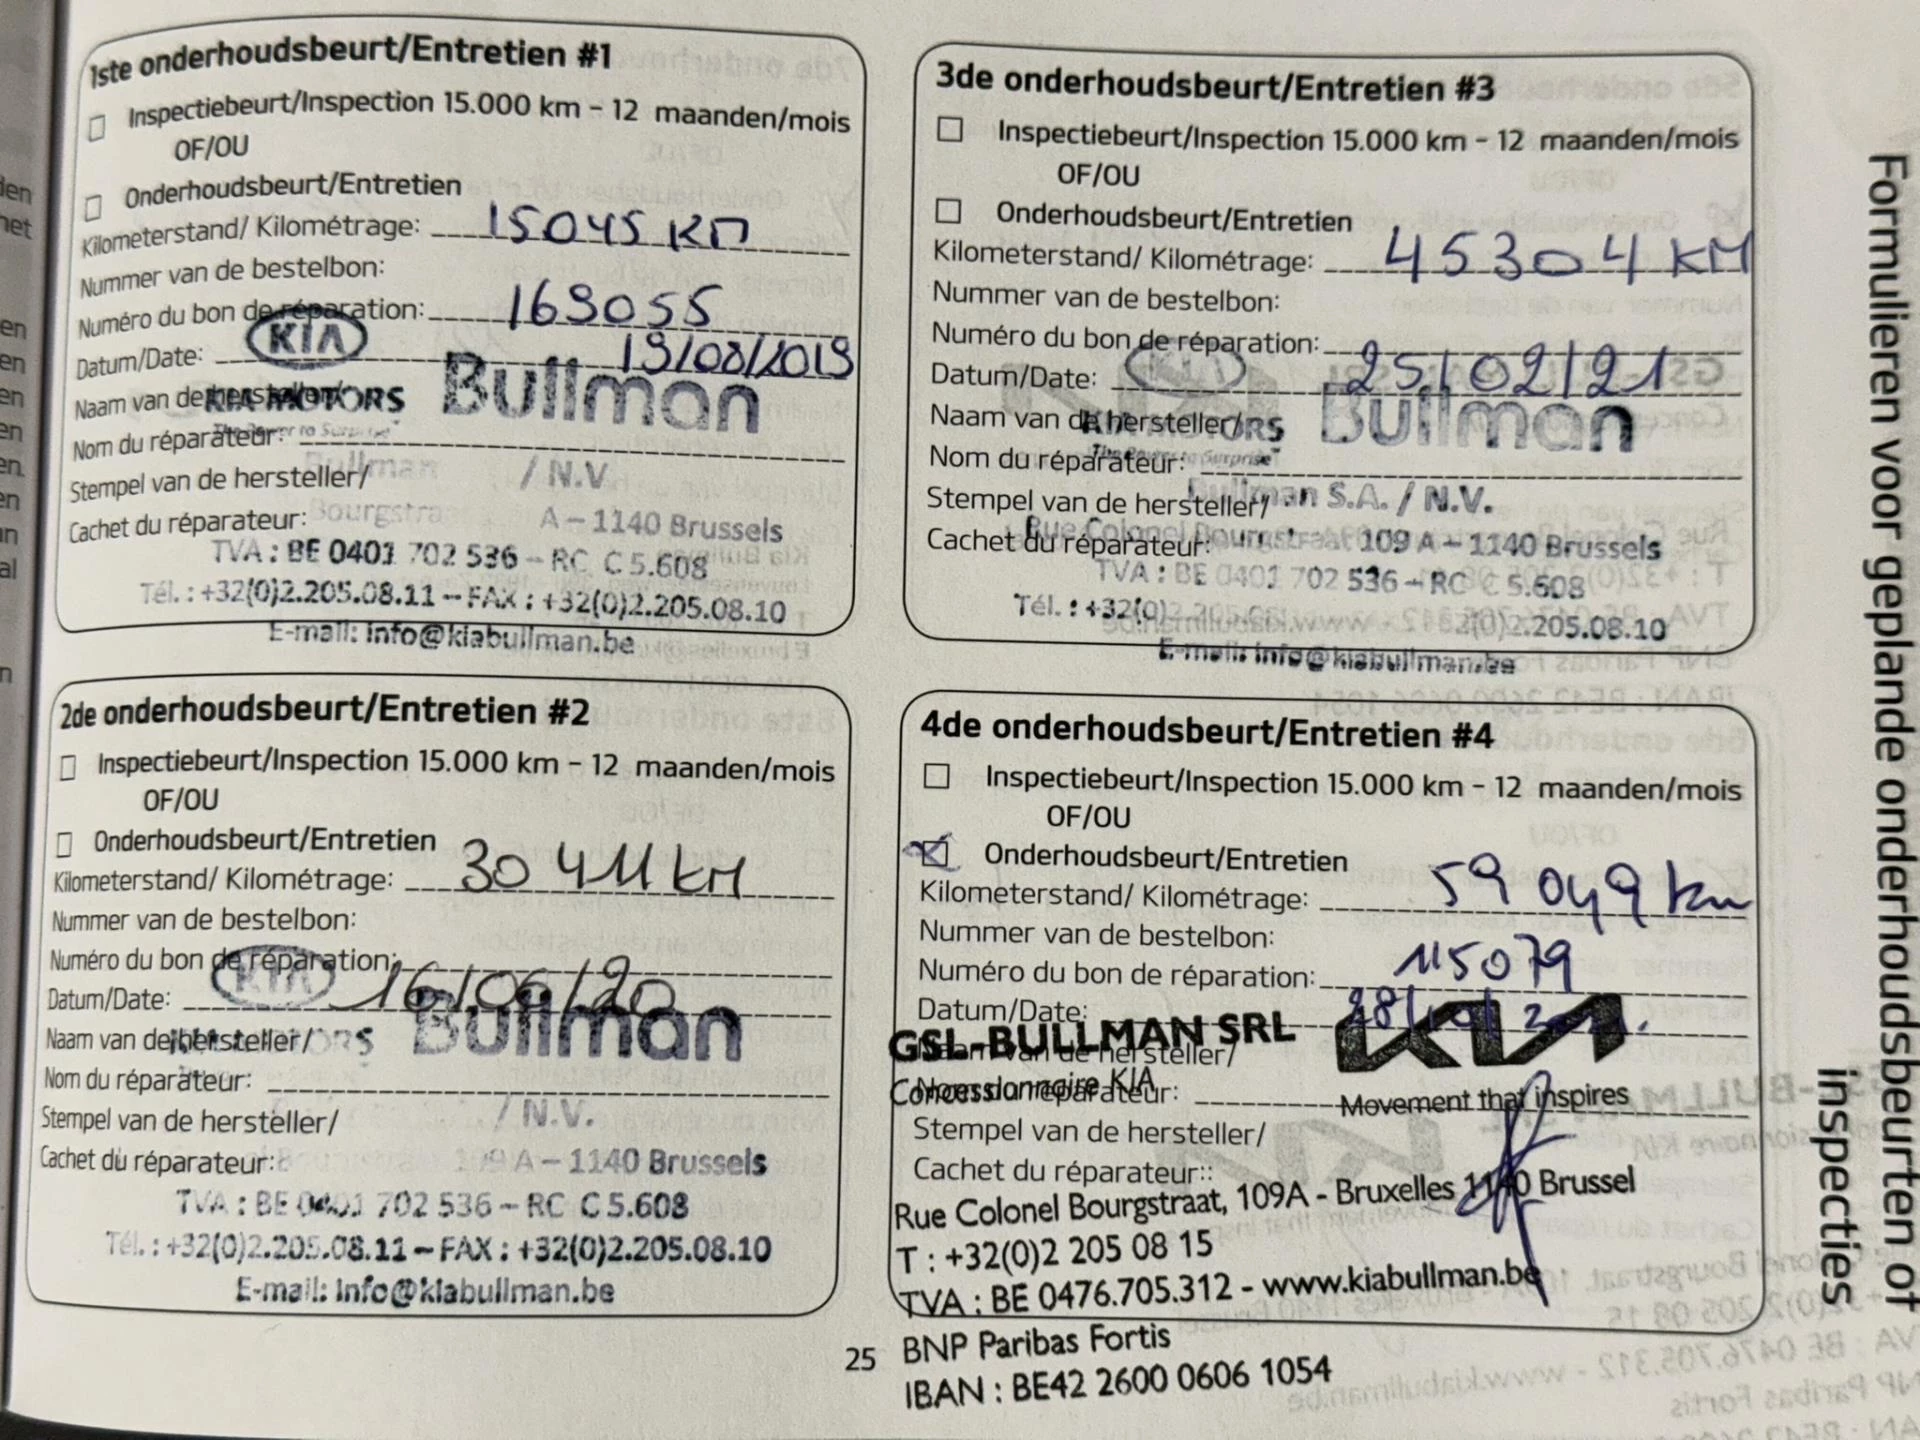 1ste onderhoudsbeurt/Entretien #1
Inspectiebeurt/Inspection 15.000 km - 12 maanden/mois
OF/OU
Onderhoudsbeurt/Entretien
Kilometerstand/ Kilométrage: 15045 KM
Nummer van de bestelbon:
Numéro du bon de réparation: 169055
KIA
Datum/Date: 19/08/2019
Naam van de hersteller/
KIA MOTORS Bullman
The Power to Surprise
Nom du réparateur:
Bullman / N.V.
Stempel van de hersteller/
Cachet du réparateur:
A - 1140 Brussels
TVA : BE 0401 702 536 - RC C 5.608
Tél. : +32(0)2.205.08.11 - FAX : +32(0)2.205.08.10
E-mail: info@kiabullman.be
2de onderhoudsbeurt/Entretien #2
Inspectiebeurt/Inspection 15.000 km - 12 maanden/mois
OF/OU
Onderhoudsbeurt/Entretien
Kilometerstand/ Kilométrage: 30 411 kM
Nummer van de bestelbon:
Numéro du bon de réparation:
KIA
Datum/Date: 16/06/20
Naam van de hersteller/
Bullman
Nom du réparateur:
/ N.V.
Stempel van de hersteller/
Cachet du réparateur:
109 A - 1140 Brussels
TVA : BE 0401 702 536 - RC C 5.608
Tél. : +32(0)2.205.08.11 - FAX : +32(0)2.205.08.10
E-mail: info@kiabullman.be
25
3de onderhoudsbeurt/Entretien #3
Inspectiebeurt/Inspection 15.000 km - 12 maanden/mois
OF/OU
Onderhoudsbeurt/Entretien
Kilometerstand/ Kilométrage: 45304 KM
Nummer van de bestelbon:
Numéro du bon de réparation:
KIA
Datum/Date: 25/02/21
Naam van de hersteller/
KIA MOTORS Bullman
The Power to Surprise
Nom du réparateur:
Bullman S.A. / N.V.
Stempel van de hersteller/
Rue Colonel Bourgstraat 109 A - 1140 Brussels
Cachet du réparateur:
TVA : BE 0401 702 536 - RC C 5.608
Tél. : +32(0)2.205.08.10
E-mail: info@kiabullman.be
4de onderhoudsbeurt/Entretien #4
Inspectiebeurt/Inspection 15.000 km - 12 maanden/mois
OF/OU
Onderhoudsbeurt/Entretien
Kilometerstand/ Kilométrage: 59 049 km
Nummer van de bestelbon:
Numéro du bon de réparation: 115079
Datum/Date:
GSL-BULLMAN SRL KIA
Naam van de hersteller/
Concessionnaire KIA
Nom du réparateur:
Movement that inspires
Stempel van de hersteller/
Cachet du réparateur::
Rue Colonel Bourgstraat, 109A - Bruxelles 1140 Brussel
T : +32(0)2 205 08 15
TVA : BE 0476.705.312 - www.kiabullman.be
BNP Paribas Fortis
IBAN : BE42 2600 0606 1054
Formulieren voor geplande onderhoudsbeurten of
inspecties